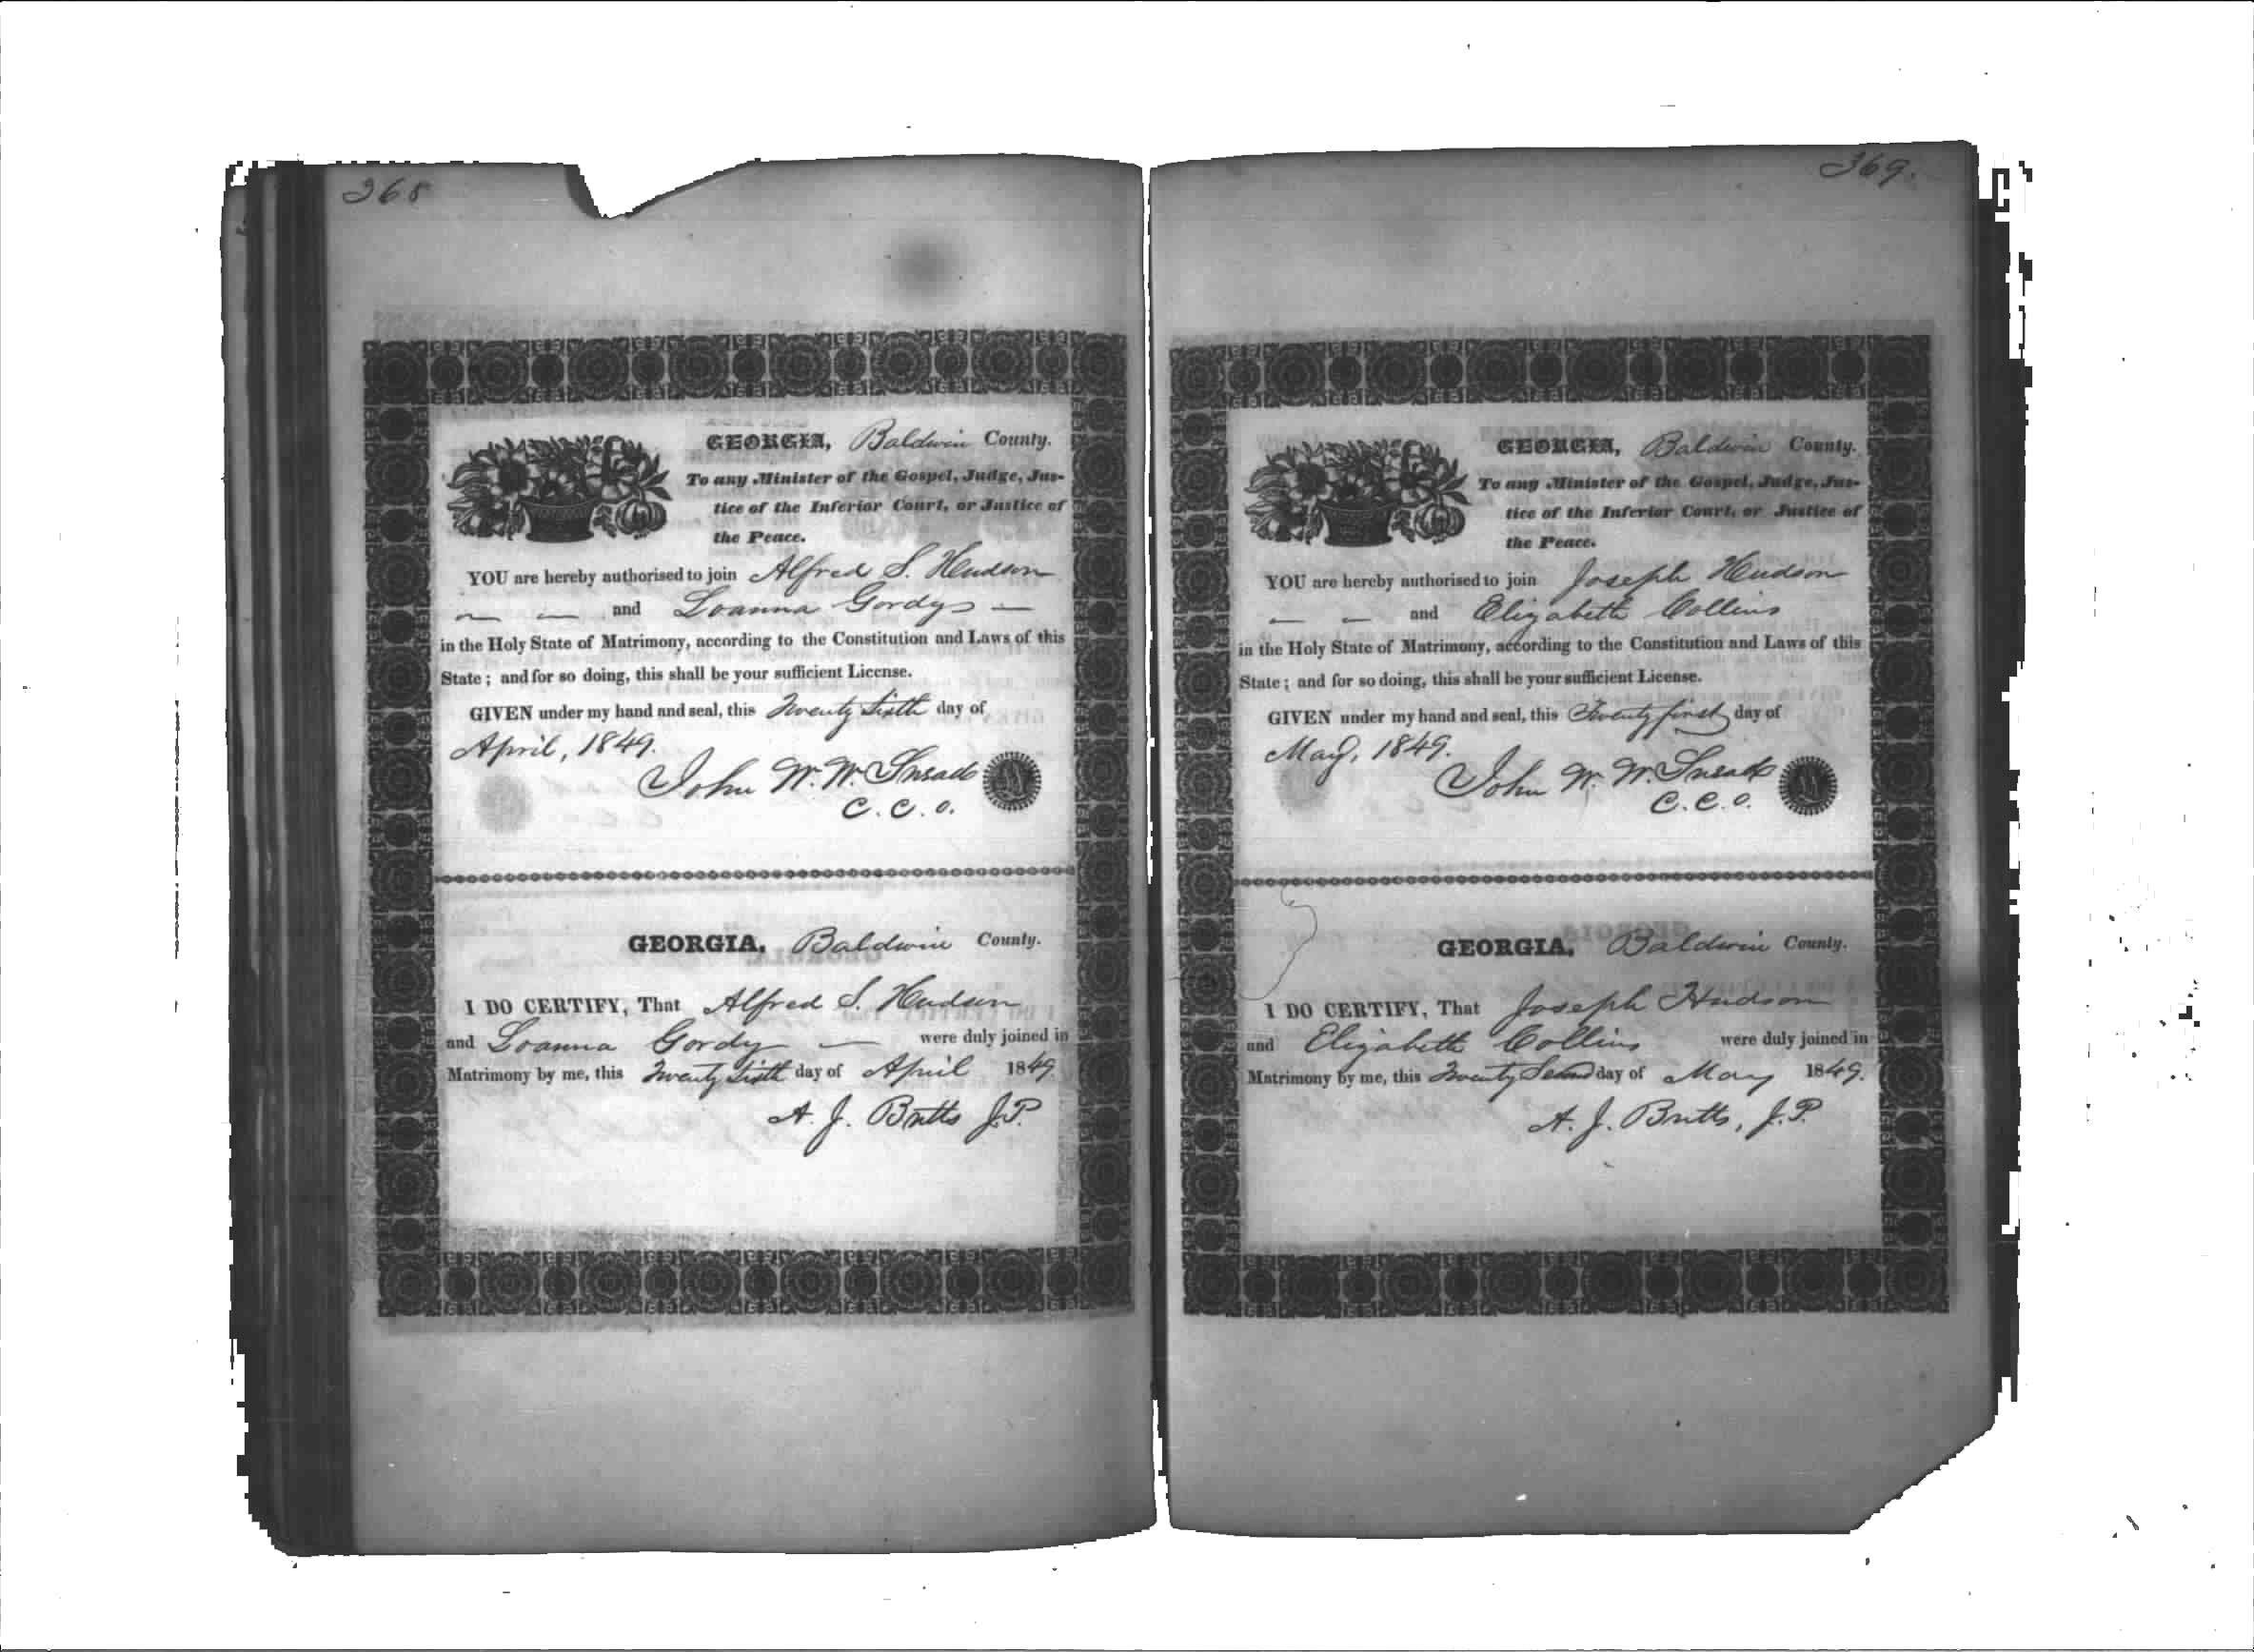 368
GEORGIA, Baldwin County.
To any Minister of the Gospel, Judge, Jus-
tice of the Inferior Court, or Justice of
the Peace.
YOU are hereby authorised to join Alfred S. Hudson
— — and Loanna Gordy —
in the Holy State of Matrimony, according to the Constitution and Laws of this
State; and for so doing, this shall be your sufficient License.
GIVEN under my hand and seal, this Twenty Sixth day of
April, 1849.
John W. W. Snead
C. C. O.
GEORGIA, Baldwin County.
I DO CERTIFY, That Alfred S. Hudson
and Loanna Gordy — were duly joined in
Matrimony by me, this Twenty Sixth day of April 1849.
A. J. Butts J.P.
369.
GEORGIA, Baldwin County.
To any Minister of the Gospel, Judge, Jus-
tice of the Inferior Court, or Justice of
the Peace.
YOU are hereby authorised to join Joseph Hudson
— — and Elizabeth Collins
in the Holy State of Matrimony, according to the Constitution and Laws of this
State; and for so doing, this shall be your sufficient License.
GIVEN under my hand and seal, this Twenty first day of
May, 1849.
John W. W. Snead
C. C. O.
GEORGIA, Baldwin County.
I DO CERTIFY, That Joseph Hudson
and Elizabeth Collins were duly joined in
Matrimony by me, this Twenty Second day of May 1849.
A. J. Butts, J.P.